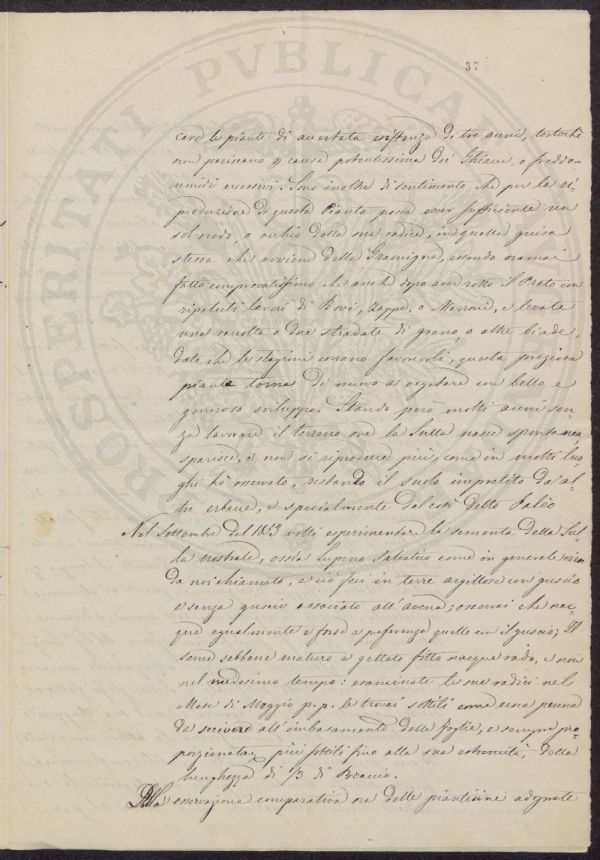 37
PROSPERITATI PVBLICAE
care le piante di accertata esistenza di tre anni, tostochè
non periscano p causa potentissima dei Ghiacci, o freddo-
umidi eccessivi. Sono inoltre di sentimento, che per la ri-
produzione di questa Pianta possa esser sufficiente un
sol nodo, o occhio della sua radice, in quella guisa
stessa che avviene della Gramigna, essendo oramai
fatto comprovatissimo che anche dopo aver rotto il Prato con
ripetuti lavori di Bovi, Zappa, o Marroni, e levate
una raccolta o due stradate di grano, o altre biade,
dato che le stagioni corrano favorevoli, questa preziosa
pianta torna di nuovo a vegetare con bello e
generoso sviluppo. Stando però molti anni sen-
za lavorare il terreno ove la Sulla nasce spontanea
sparisce, e non si riproduce più, come in molti luo-
ghi hò osservato, restando il suolo impratito da al-
tre erbacce, e specialmente dal così detto Palèo
Nel Settembre del 1843 volli esperimentare la sementa della Sul-
la nostrale, ossia Lupino Salvatico come in generale vien
da noi chiamato, e ciò feci in terre argillose con guscio
e senza guscio associato all'avena; osservai che nac-
que egualmente e forse a preferenza quello con il guscio; Il
seme sebbene maturo e gettato fitto nacque rado, e non
nel medesimo tempo: esaminate le sue radici nel
Mese di Maggio p.p. le trovai sottili come una penna
da scrivere all'imbasamento delle foglie, e sempre pro-
porzionatam più sottili fino alla sua estremità, della
lunghezza di 1/3 di Braccio.
Dalla osservazione comparativa ora delle pianticine adequate